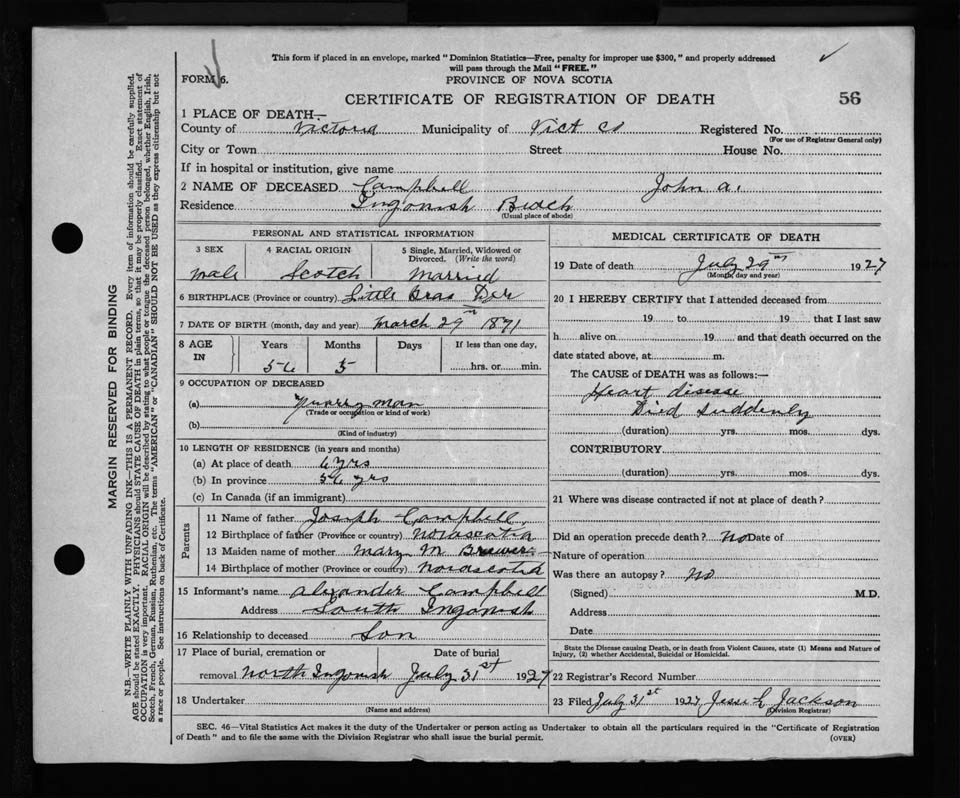 This form if placed in an envelope, marked "Dominion Statistics—Free, penalty for improper use $300," and properly addressed
will pass through the Mail "FREE."
FORM 6.
PROVINCE OF NOVA SCOTIA
CERTIFICATE OF REGISTRATION OF DEATH
56
1 PLACE OF DEATH—
County of Victoria Municipality of Vict Co Registered No.
(For use of Registrar General only)
City or Town Street House No.
If in hospital or institution, give name
2 NAME OF DECEASED Campbell John A.
Residence Ingonish Beach
(Usual place of abode)
PERSONAL AND STATISTICAL INFORMATION
3 SEX 4 RACIAL ORIGIN 5 Single, Married, Widowed or Divorced. (Write the word)
Male Scotch Married
6 BIRTHPLACE (Province or country) Little Bras Dor
7 DATE OF BIRTH (month, day and year) March 29th 1871
8 AGE IN Years Months Days If less than one day,
56 5 hrs. or min.
9 OCCUPATION OF DECEASED
(a) Quarry man
(Trade or occupation or kind of work)
(b)
(Kind of industry)
10 LENGTH OF RESIDENCE (in years and months)
(a) At place of death 6 yrs
(b) In province 56 yrs
(c) In Canada (if an immigrant)
Parents
11 Name of father Joseph Campbell
12 Birthplace of father (Province or country) Novascotia
13 Maiden name of mother Mary M Brewer
14 Birthplace of mother (Province or country) Novascotia
15 Informant's name Alexander Campbell
Address South Ingonish
16 Relationship to deceased Son
17 Place of burial, cremation or Date of burial
removal North Ingonish July 31st 1927
18 Undertaker
(Name and address)
MEDICAL CERTIFICATE OF DEATH
19 Date of death July 29th 1927
(Month, day and year)
20 I HEREBY CERTIFY that I attended deceased from
19 to 19 that I last saw
h alive on 19 and that death occurred on the
date stated above, at m.
The CAUSE of DEATH was as follows:—
Heart disease
Died suddenly
(duration) yrs. mos. dys.
CONTRIBUTORY
(duration) yrs. mos. dys.
21 Where was disease contracted if not at place of death?
Did an operation precede death? No Date of
Nature of operation
Was there an autopsy? No
(Signed) M.D.
Address
Date
State the Disease causing Death, or in death from Violent Causes, state (1) Means and Nature of
Injury, (2) whether Accidental, Suicidal or Homicidal.
22 Registrar's Record Number
23 Filed July 31st 1927 Jessie L Jackson
(Division Registrar)
SEC. 46—Vital Statistics Act makes it the duty of the Undertaker or person acting as Undertaker to obtain all the particulars required in the "Certificate of Registration
of Death" and to file the same with the Division Registrar who shall issue the burial permit.
(OVER)
MARGIN RESERVED FOR BINDING
N.B.—WRITE PLAINLY WITH UNFADING INK—THIS IS A PERMANENT RECORD. Every item of information should be carefully supplied.
AGE should be stated EXACTLY. PHYSICIANS should STATE CAUSE OF DEATH in plain terms, so that it may be properly classified. Exact statement of
OCCUPATION is very important. RACIAL ORIGIN will be described by stating to what people or tongue the deceased person belonged, whether English, Irish,
Scotch, French, German, Russian, Ruthenian, etc. The terms "AMERICAN" or "CANADIAN" SHOULD NOT BE USED as they express citizenship but not
a race or people. See instructions on back of Certificate.